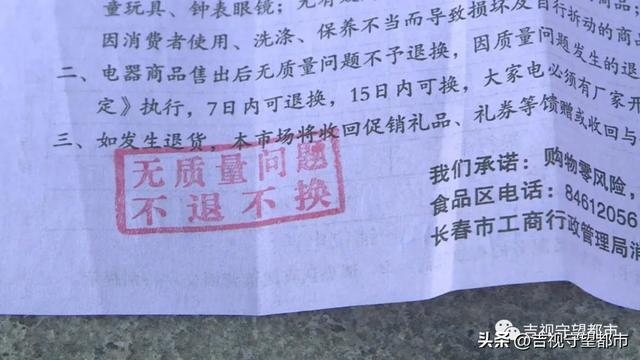 童玩具、钟表眼镜；无质
因消费者使用、洗涤、保养不当而导致损坏及自行拆动的商品
二、电器商品售出后无质量问题不予退换，因质量问题发生的退
定》执行，7日内可退换，15日内可换，大家电必须有厂家开
三、如发生退货，本市场将收回促销礼品、礼券等馈赠或收回与
无质量问题
不退不换
我们承诺：购物零风险，
食品区电话：84612056
长春市工商行政管理局消
吉视守望都市
头条@吉视守望都市